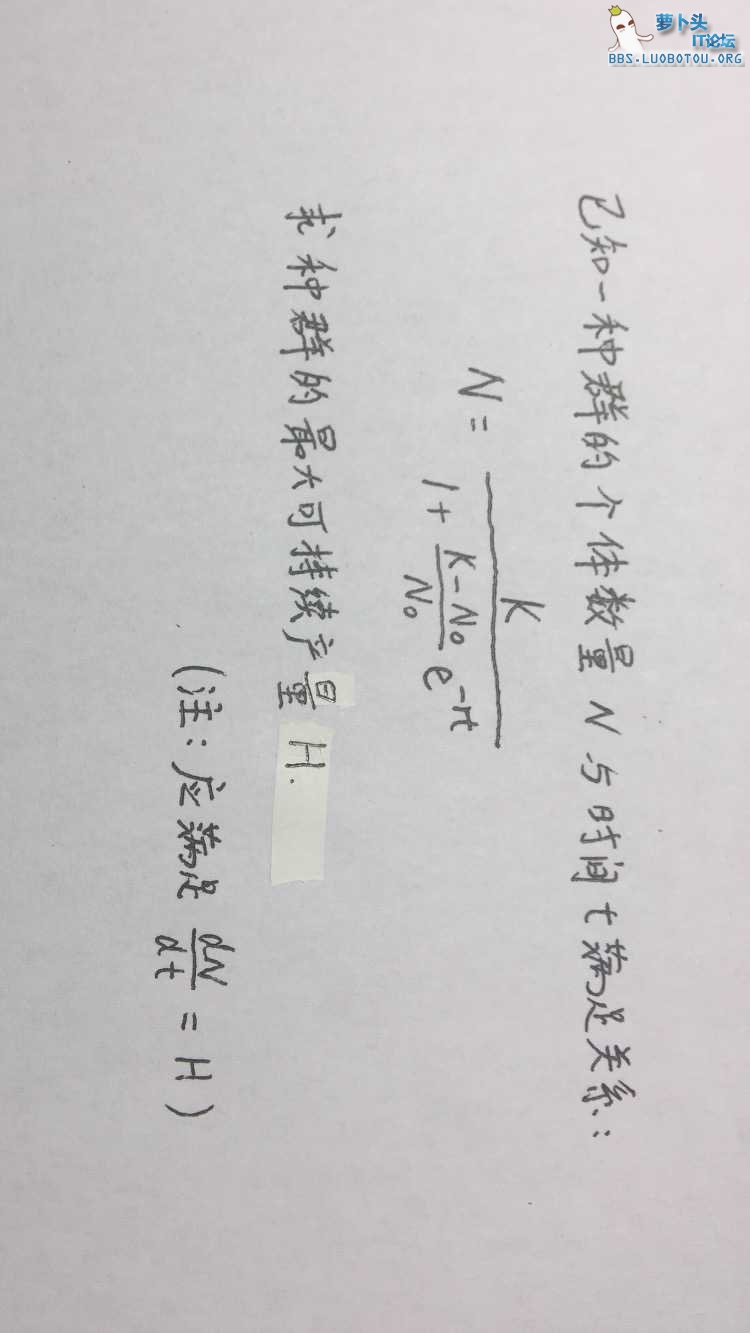 萝卜头
IT论坛
BBS.LUOBOTOU.ORG
已知一种群的个体数量 N 与时间 t 满足关系:
N = K / (1 + (K - N₀)/N₀ e^(-rt))
求种群的最大可持续产量 H.
(注: 应满足 dN/dt = H)